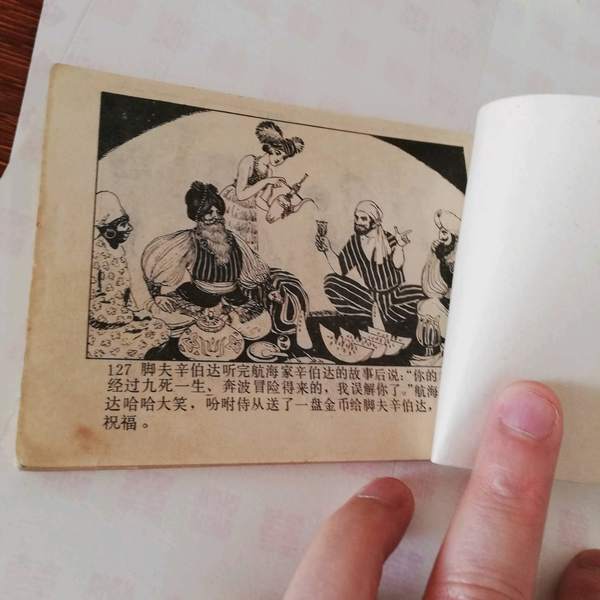 127 脚夫辛伯达听完航海家辛伯达的故事后说:“你的
经过九死一生、奔波冒险得来的，我误解你了。”航海
达哈哈大笑，吩咐侍从送了一盘金币给脚夫辛伯达，
祝福。